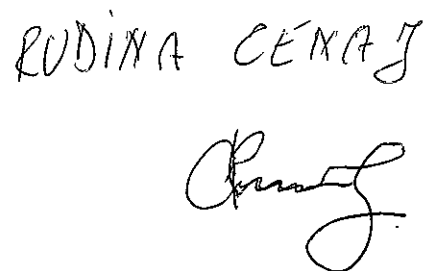 RUDINA CENAJ